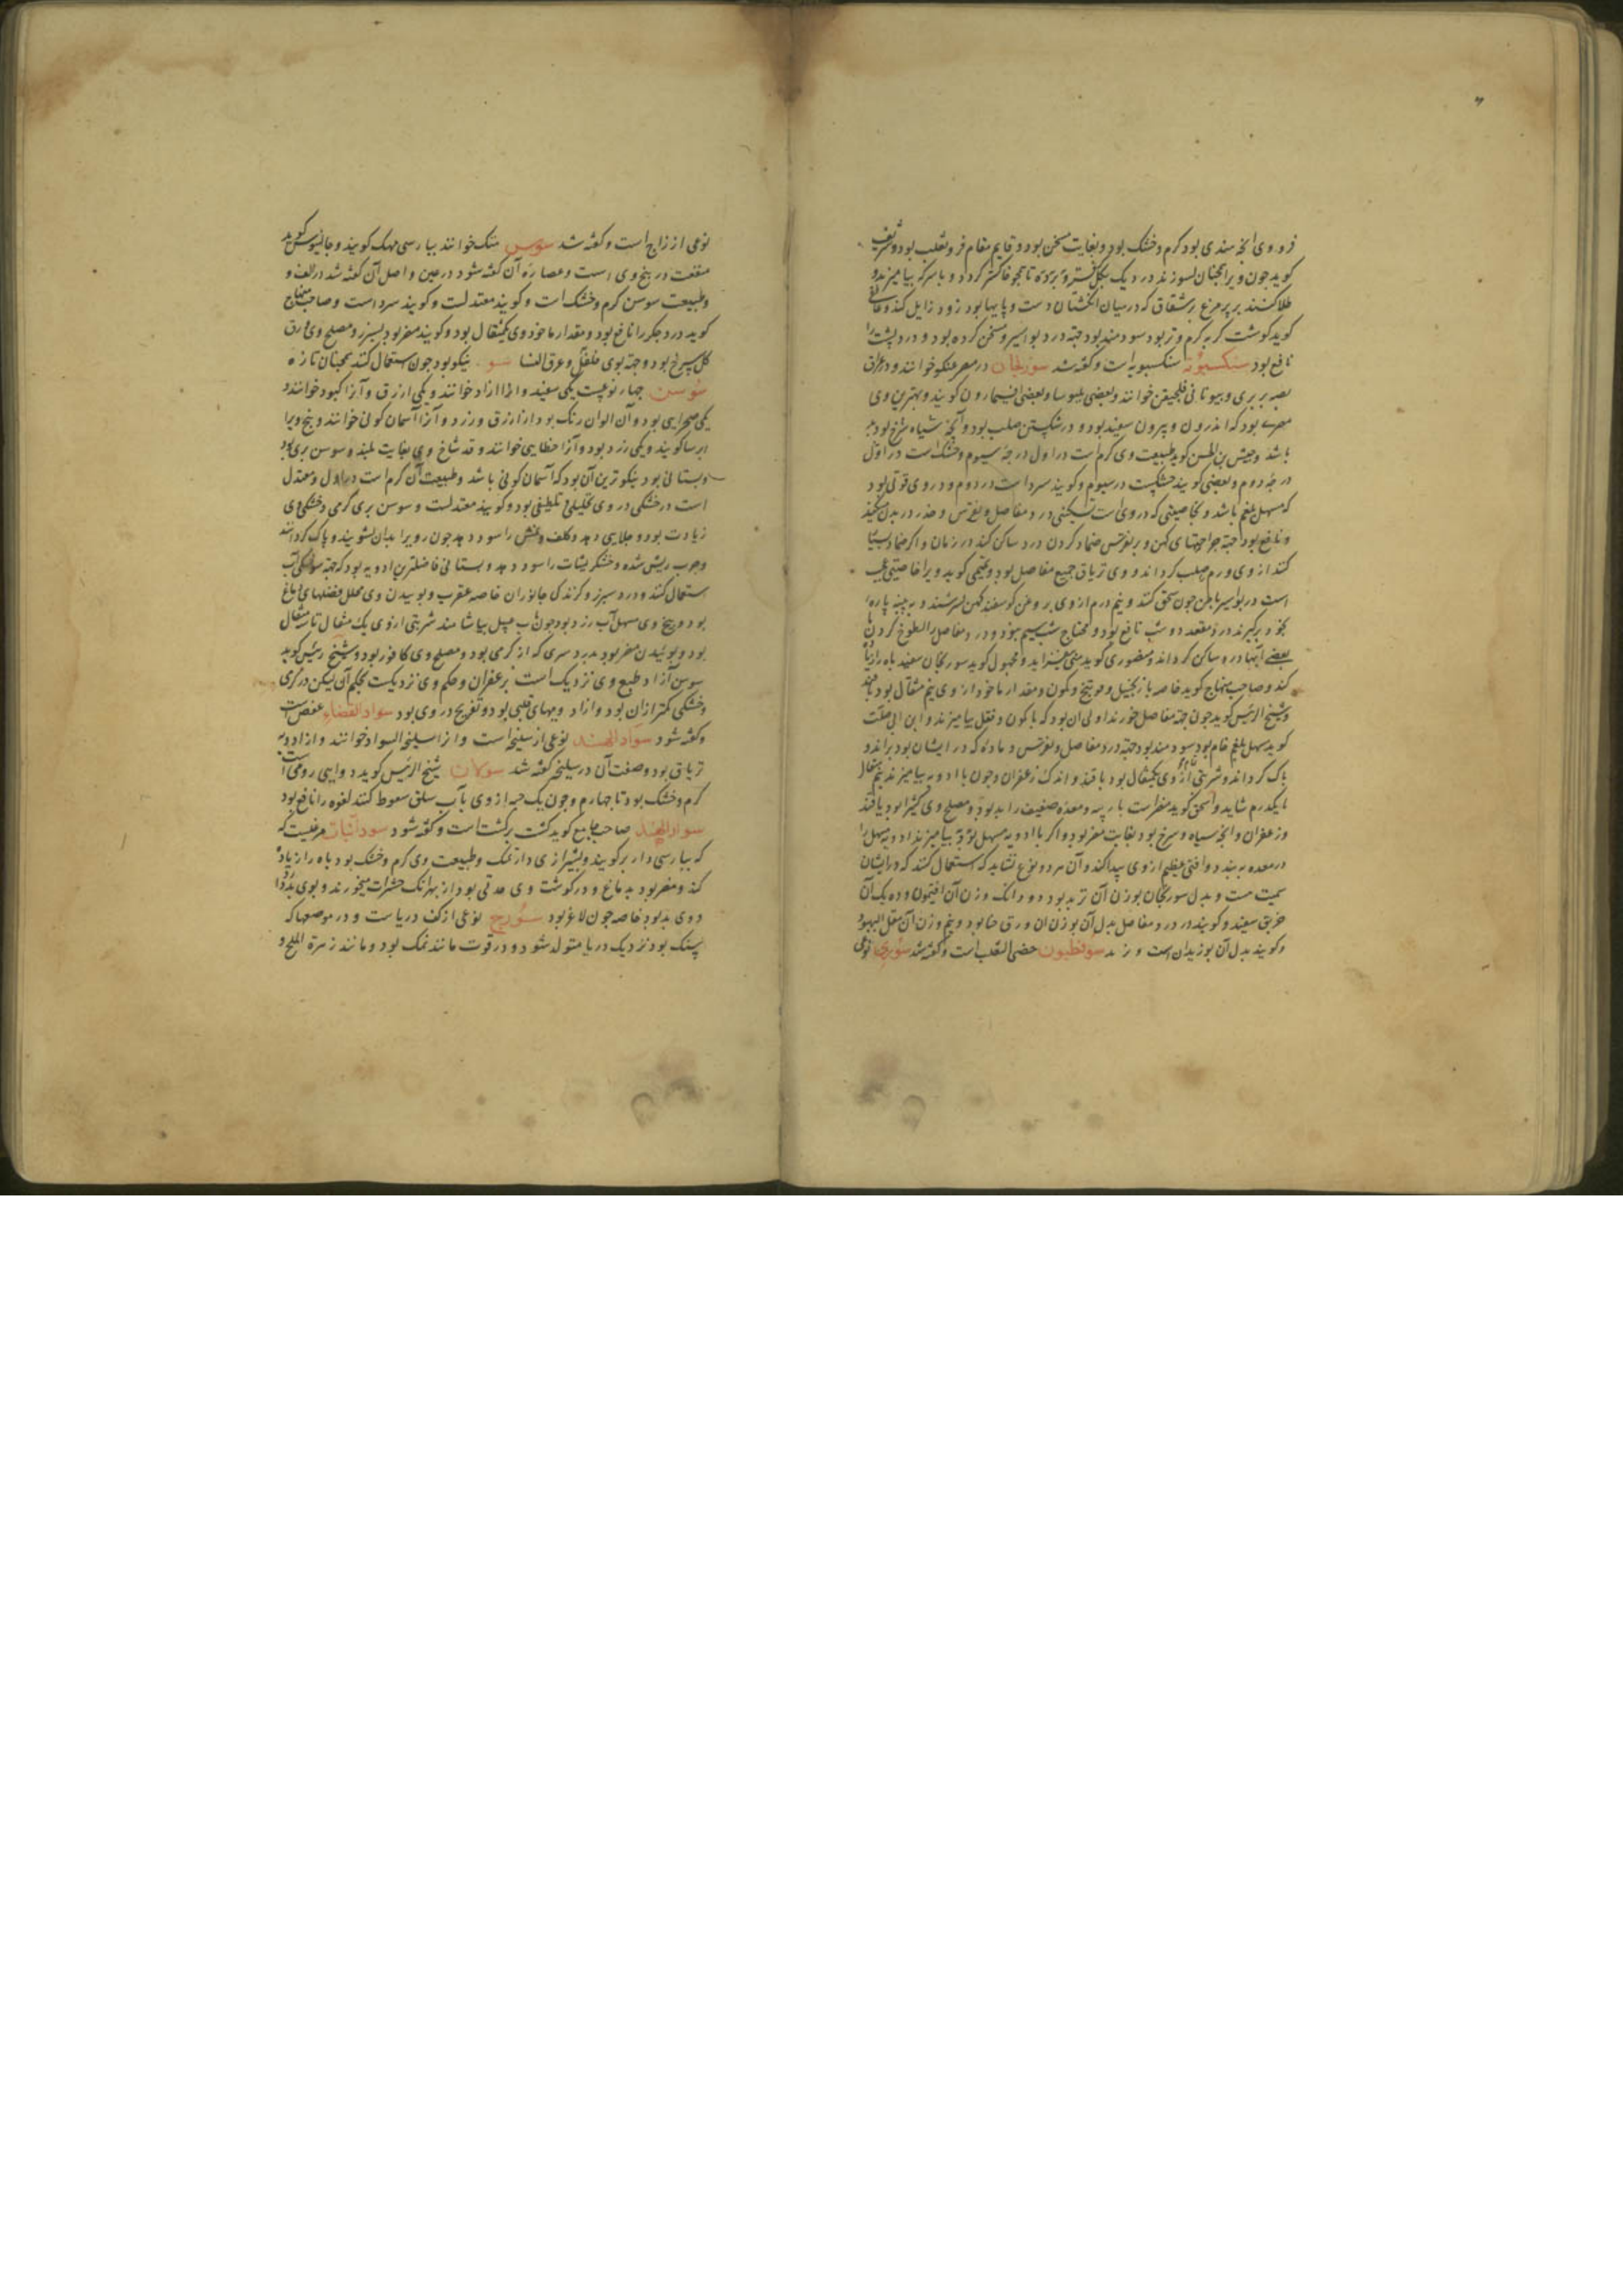 فرو وی انجه هندی بود گرم و خشک بود و بغایت مسخن بود و قایم مقام فرو ثعلب بود و شریف
کوید چون ویرا همچنان بسوزند در دیک تا همچو خاکستر کردد و با سرکه بیامیزند و
طلا کنند بر شقاق که در میان انکشتان دست و پایها بود زود زایل کند و غافقی
کوید کوشت کربه کرم و تر بود سودمند بود جهة درد بواسیر و مسخن کرده بود و درد پشت را
نافع بود سنکسبویه سنکسبویه است و کفته شد سورنجان در مصر عنکو خوانند و در عراق
لعبه بربری و بیونانی قلجیقن خوانند و بعضی کویند و بهترین وی
مصری بود که اندرون و بیرون سفید بود و در شکستن صلب بود و آنچه سیاه و سرخ بود بد
باشد و حبیش بن الحسن کوید طبیعت وی کرم است در اول درجه سیوم و خشک است در اول
درجه دوم و بعضی کویند خشکست در سیوم و کویند سرد است در دوم و در وی قوتی بود
که مسهل بلغم باشد و بخاصیتی که در وی است تسکین درد مفاصل و نقرس و در بدن میکند
و نافع بود جهة جراحتهای کهن و بر نقرس ضماد کردن درد ساکن کند در زمان و اکر ضماد بسیار
کنند از وی ورم صلب کرداند و وی تریاق جمیع مفاصل بود و تمیمی کوید ویرا خاصیتی عجیب
است در بواسیر باطن چون سحق کنند و نیم درم از وی بر روغن کوسفند کهن بسرشند و به پنبه پاره
بخود برکیرند در مقعد دو شب نافع بود و محتاج شب سیم نبود و درد مفاصل را لطوخ کردن با
بعضی آبها درد ساکن کرداند و منصوری کوید منی بیفزاید و مجهول کوید سورنجان سفید باه را زیاده
کند و صاحب منهاج کوید خاصه با زنجبیل و فوتنج و کمون و مقدار ماخوذ از وی نیم مثقال بود با قند
و شیخ الرئیس کوید چون جهة مفاصل خورند اولی آن بود که با کمون و فلفل بیامیزند و ابن ابی صلت
کوید مسهل بلغم خام بود سودمند بود جهة درد مفاصل و نقرس و ماده که در ایشان بود براند و
پاک کرداند و شربتی از وی یکمثقال بود با قند و اندک زعفران و چون با ادویه بیامیزند نیم مثقال
تا یکدرم شاید و اسحق کوید مضر است با ریه و معده ضعیف را بد بود و مصلح وی کثیرا بود یا قند
و زعفران و آنچه سیاه و سرخ بود بغایت مضر بود و اکر با ادویه مسهل بیامیزند ادویه مسهل را
در معده ببندد و آفتی عظیم از وی پیدا کند و آن هر دو نوع نشاید که استعمال کنند که در ایشان
سمیت هست و بدل سورنجان بوزن آن تربد بود و دو دانک وزن آن افتیمون و ده یک آن
خربق سفید و کویند در درد مفاصل بدل آن بوزن آن ورق حنا بود و نیم وزن آن مقل الیهود
و کویند بدل آن بوزیدان است سونطیون خصی الثعلب است و کفته شد سوری نوعی
نوعی از زاج است و کفته شد سوس متک خوانند بپارسی مهک کویند و جالینوس کوید
منفعت در بیخ وی است و عصاره آن کفته شود در عین و اصل آن کفته شد در الف و
و طبیعت سوس کرم و خشک است و کویند معتدلست و کویند سرد است و صاحب منهاج
کوید درد جکر را نافع بود و مقدار ماخوذ وی یکمثقال بود و کویند مضر بود بسپرز و مصلح وی ورق
کل سرخ بود و جهة بوی بغل و عرق النسا سو نیکو بود چون استعمال کنند همچنان تازه
سوسن چهار نوعیست یکی سفید و آنرا آزاد خوانند و یکی ازرق و آنرا کبود خوانند و
یکی صحرایی بود و آن الوان رنک بود از ازرق و زرد و آنرا آسمان کونی خوانند و بیخ ویرا
ایرسا کویند و یکی زرد بود و آنرا خطایی خوانند و قد شاخ وی بغایت بلند و سوسن بری بود
و بستانی بود نیکوترین آن بود که آسمان کونی باشد و طبیعت آن کرم است در اول و معتدل
است در خشکی در وی تحلیلی و تلطیفی بود و کویند معتدلست و سوسن بری کرمی و خشکی وی
زیادت بود و جلایی دهد و کلف و نمش را سود دهد چون رویرا بدان بشویند و پاک کردانند
و جرب ریش شده و خشکریشات را سود دهد و بستانی فاضلترین ادویه بود که جهة سوختکی آب
استعمال کنند و درد سپرز و کزندکی جانوران خاصه عقرب و بوییدن وی محلل فضلهای دماغ
بود و بیخ وی مسهل آب زرد بود چون با عسل بیاشامند شربتی از وی یک مثقال تا سه مثقال
بود و بوئیدن مضر بود بدرد سری که از کرمی بود و مصلح وی کافور بود و شیخ رئیس کوید
سوسن آزاد طبع وی نزدیک است بزعفران و حکم وی نزدیکست بحکم آن لیکن در کرمی
و خشکی کمتر از آن بود و از ادویهای قلبی بود و تفریح در وی بود سواد القضاه عفص است
و کفته شود سواد الهند نوعی از سلیخه است و آنرا سلیخة السواد خوانند و از ادویه
تریاق بود و صفت آن در سلیخه کفته شد سولان شیخ الرئیس کوید دوایی رومی است
کرم و خشک بود تا چهارم و چون یک حبه از وی با آب سلق سعوط کنند لقوه را نافع بود
سواد الهند صاحب جامع کوید کشت برکشت است و کفته شود سودانیات مرغیست که
که بپارسی داربر کویند و بشیرازی دارتمک و طبیعت وی کرم و خشک بود باه را زیاده
کند و مضر بود بدماغ و در کوشت وی حدتی بود از بهر آنک حشرات میخورند و بوی بد دارد
و وی بد بود خاصه چون لاغر بود سورج نوعی از کف دریاست و در موضعها که
سنک بود نزدیک دریا متولد شود و در قوت مانند نمک بود و مانند زهرة الملح و